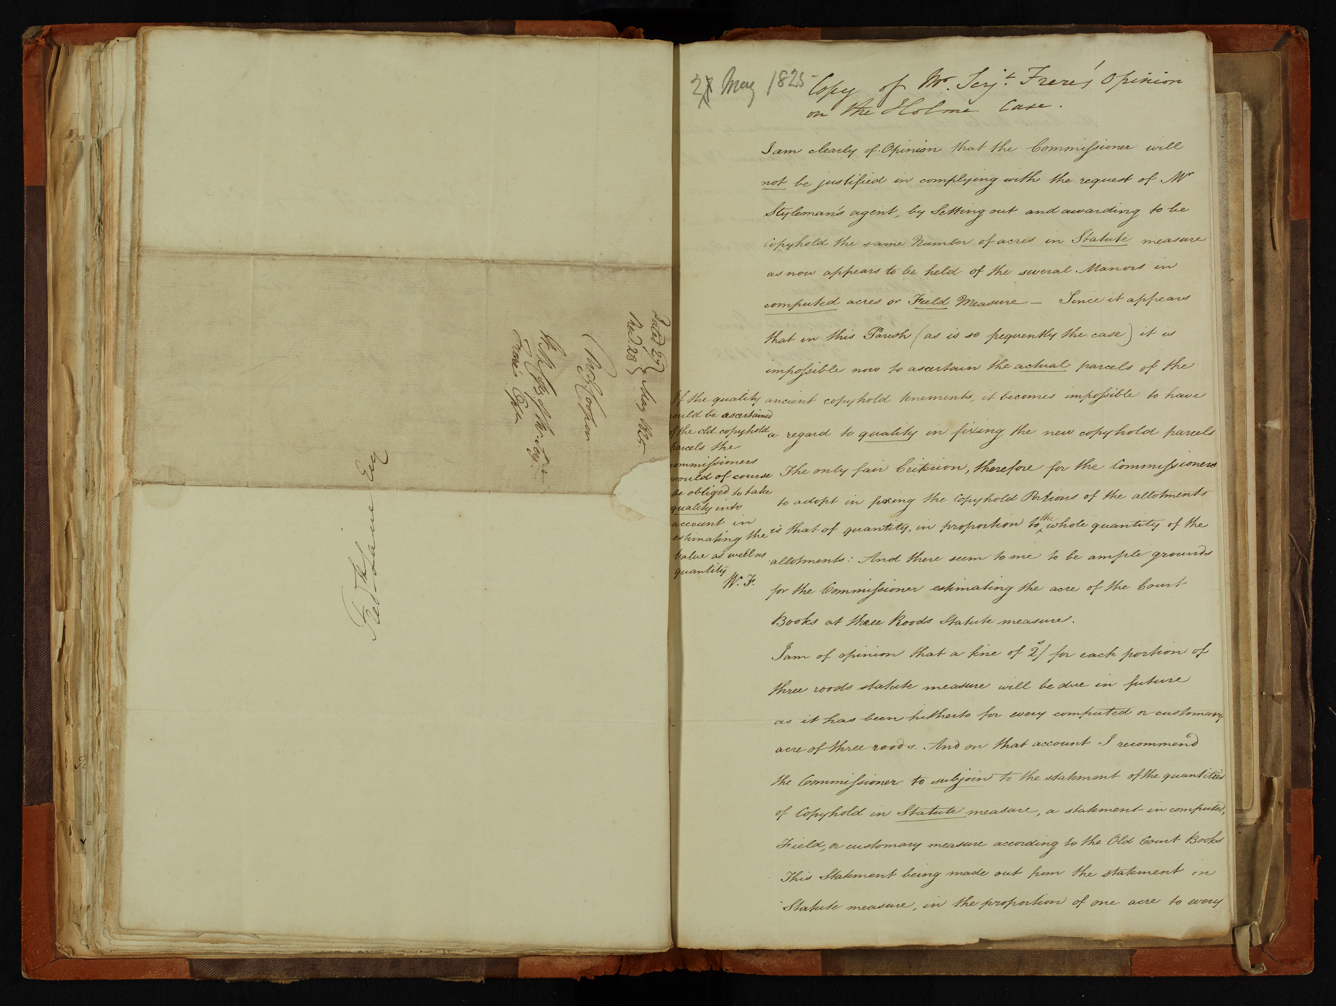 Dated 27
Recd 28
May 1825
Mr Holm
Fredk Lane Esq
27 May 1825
Copy of Mr. Serjt. Frere's Opinion
on the Holme Case.
I am clearly of Opinion that the Commissioner will
not be justified in complying with the request of Mr
Styleman's agent, by Setting out and awarding to be
Copyhold the same Number of acres in Statute measure
as now appears to be held of the several Manors in
computed acres or Field Measure — Since it appears
that in this Parish (as is so frequently the case) it is
impossible now to ascertain the actual parcels of the
ancient copyhold tenements, it becomes impossible to have
a regard to quality in fixing the new copyhold parcels
The only fair Criterion, therefore for the Commissioners
to adopt in fixing the Copyhold Portions of the allotments
is that of quantity, in proportion to the whole quantity of the
allotments: And there seem to me to be ample grounds
for the Commissioner estimating the acre of the Court
Books at three Roods Statute measure.
I am of opinion that a fine of 2/ for each portion of
three roods statute measure will be due in future
as it has been hitherto for every computed or customary
acre of three roods. And on that account I recommend
the Commissioner to subjoin to the statement of the quantities
of Copyhold in Statute measure, a statement in computed,
Field, or customary measure according to the Old Court Books
This Statement being made out from the statement in
Statute measure, in the proportion of one acre to every
If the quality
could be ascertained
of the old copyhold
parcels the
commissioners
would of course
be obliged to take
quality into
account in
estimating the
value as well as
quantity
W. F.